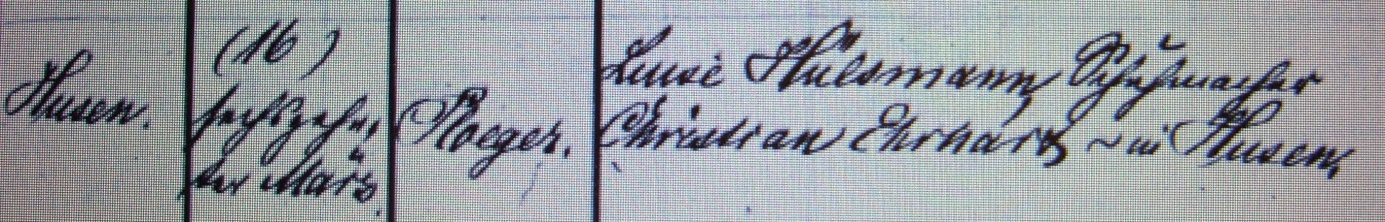 Husen.
(16)
sechszehn
ter März
Roeger.
Luise Hülsmann, Schuhmacher
Christian Ehrhartz ~ in Husen,